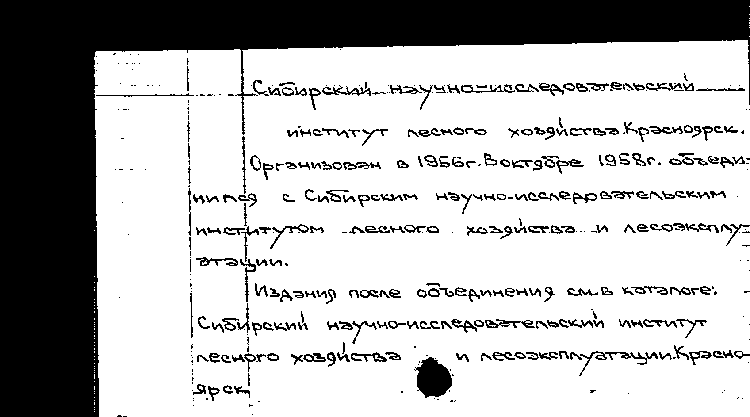 Сибирский научно-исследовательский
институт лесного хозяйства. Красноярск.
Организован в 1956г. В октябре 1958г. объеди-
нился с Сибирским научно-исследовательским
институтом лесного хозяйства и лесоэксплу-
атации.
Издания после объединения см. в каталоге:
Сибирский научно-исследовательский институт
лесного хозяйства и лесоэксплуатации. Красно-
ярск